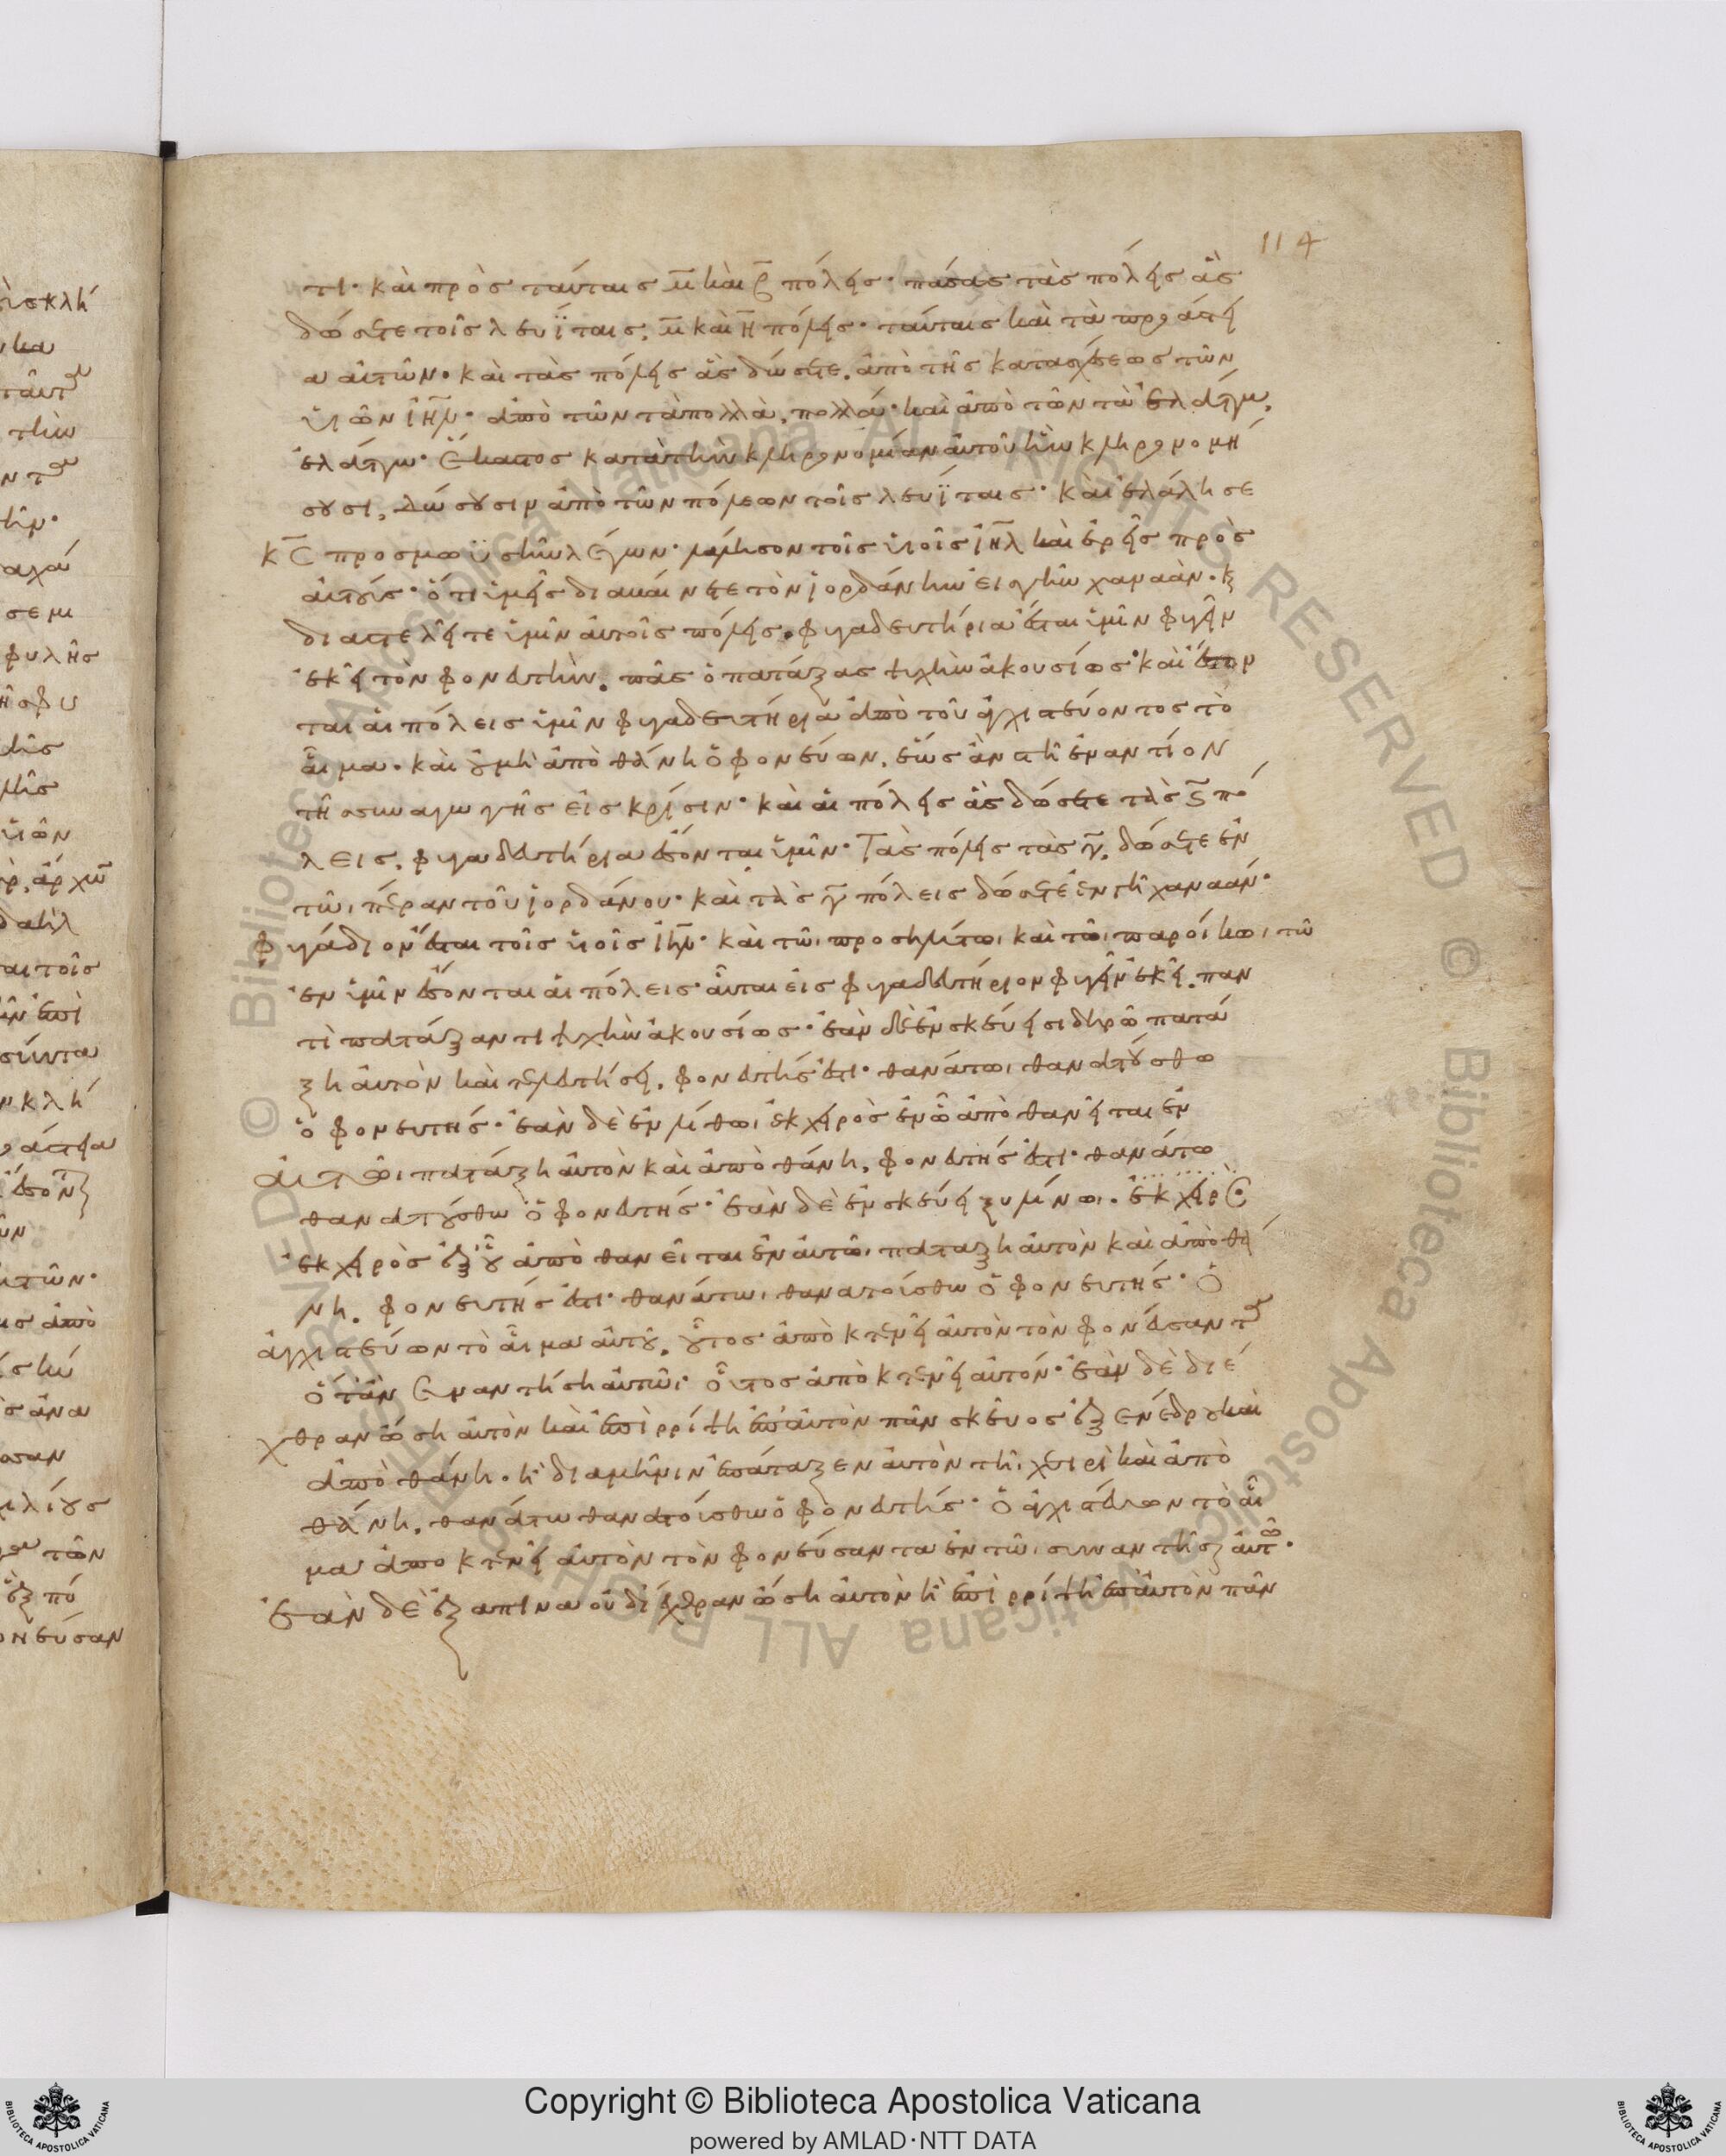 114
τι· καὶ πρὸς ταύταις μ̅ καὶ β̅ πόλεις· πάσας τὰς πόλεις ἃς
δώσετε τοῖς λευΐταις, μ̅ καὶ η̅ πόλεις· ταύτας καὶ τὰ προάστεια
αὐτῶν· καὶ τὰς πόλεις ἃς δώσετε, ἀπὸ τῆς κατασχέσεως τῶν
ὑιῶν ιη̅λ· ἀπὸ τῶν τὰ πολλὰ, πολλά· καὶ ἀπὸ τῶν τὰ ἐλάττω,
ἐλάττω· ἕκαστος κατὰ τὴν κληρονομίαν αὐτοῦ ἣν κληρονομή
σουσι, δώσουσιν ἀπὸ τῶν πόλεων τοῖς λευΐταις· καὶ ἐλάλησε
κ̅ς προσ μωϋσῆν λέγων· λάλησον τοῖς ὑιοῖς ιη̅λ καὶ ἐρεῖς πρὸς
αὐτούς· ὅτι ὑμεῖς διαβαίνετε τὸν ἰορδάνην εἰς γῆν χαναὰν· κ
διαστελεῖτε ὑμῖν αὐτοῖς πόλεις· φυγαδευτήρια ἔσται ὑμῖν φυγεῖν
ἐκεῖ τὸν φονευτὴν, πᾶς ὁ πατάξας ψυχὴν ἀκουσίως· καὶ ἔσον
ται αἱ πόλεις ὑμῖν φυγαδευτήρια ἀπὸ τοῦ ἀγχιστεύοντος τὸ
αἷμα· καὶ οὐ μὴ ἀποθάνη ὁ φονεύων, ἕως ἂν στῆ ἐναντίον
τῆσ συναγωγῆς εἰς κρίσιν· καὶ αἱ πόλεις ἃς δώσετε τὰς ϛ̅ πό
λεις, φυγαδευτήρια ἔσονται ὑμῖν· Τὰς πόλεις τὰς γ̅, δώσετε ἐν
τῶι πέραν τοῦ ἰορδάνου· καὶ τὰς γ̅ πόλεις δώσετε ἐν γῆ χαναάν·
φυγάδιον ἔσται τοῖς ὑιοῖς ιη̅λ· καὶ τῶι προσηλύτωι καὶ τῶι παροίκωι τῶ
ἐν ὑμῖν ἔσονται αἱ πόλεις αὗται εἰς φυγαδευτήριον φυγεῖν ἐκεῖ, παν
τὶ πατάξαντι ψυχὴν ἀκουσίως· ἐὰν δὲ ἐν σκεύει σιδηρῶ πατά
ξη αὐτὸν καὶ τελευτήσει, φονευτής ἐστι· θανάτωι θανατούσθω
ὁ φονευτής· ἐὰν δὲ ἐν λίθωι ἐκ χειρὸς ἐν ὧ ἀποθανεῖται ἐν
αὐτῶι πατάξη αὐτὸν καὶ ἀποθάνη, φονευτής ἐστι· θανάτω
θανατούσθω ὁ φονευτής· ἐὰν δὲ ἐν σκεύει ξυλίνωι· ἐκ χειρὸς
ἐκ χειρὸς ἐξ οὗ ἀποθανεῖται ἐν αὐτῶι παταξη αὐτὸν καὶ ἀποθά
νη, φονευτής ἐστι· θανάτωι θανατοίσθω ὁ φονευτής· ὁ
ἀγχιστεύων τὸ αἷμα αὐτοῦ, οὗτος ἀποκτενεῖ αὐτὸν τὸν φονεύσαντα
ὅταν συναντήση αὐτῶι· οὗτος ἀποκτενεῖ αὐτόν· ἐὰν δὲ δι ἔ
χθραν ὤση αὐτὸν καὶ ἐπιρρίψη ἐπ αὐτὸν πᾶν σκεῦος ἐξ ἐνέδρου καὶ
ἀποθάνη· ἢ διὰ μῆνιν ἐπάταξεν αὐτὸν τῆι χειρὶ καὶ ἀπο
θάνη, θανάτω θανατοίσθω ὁ φονευτής· ὁ ἀγχιστεύων τὸ αἷ
μα ἀποκτενεῖ αὐτὸν τὸν φονεύσαντα ἐν τῶι συναντῆσαι αὐτῶ·
ἐὰν δὲ ἐξαπινα οὐ δι ἔχθραν ὤση αὐτὸν ἢ ἐπιρρίψη ἐπ αὐτὸν πᾶν
© Biblioteca Apostolica Vaticana ALL RIGHTS RESERVED
Copyright © Biblioteca Apostolica Vaticana
powered by AMLAD·NTT DATA